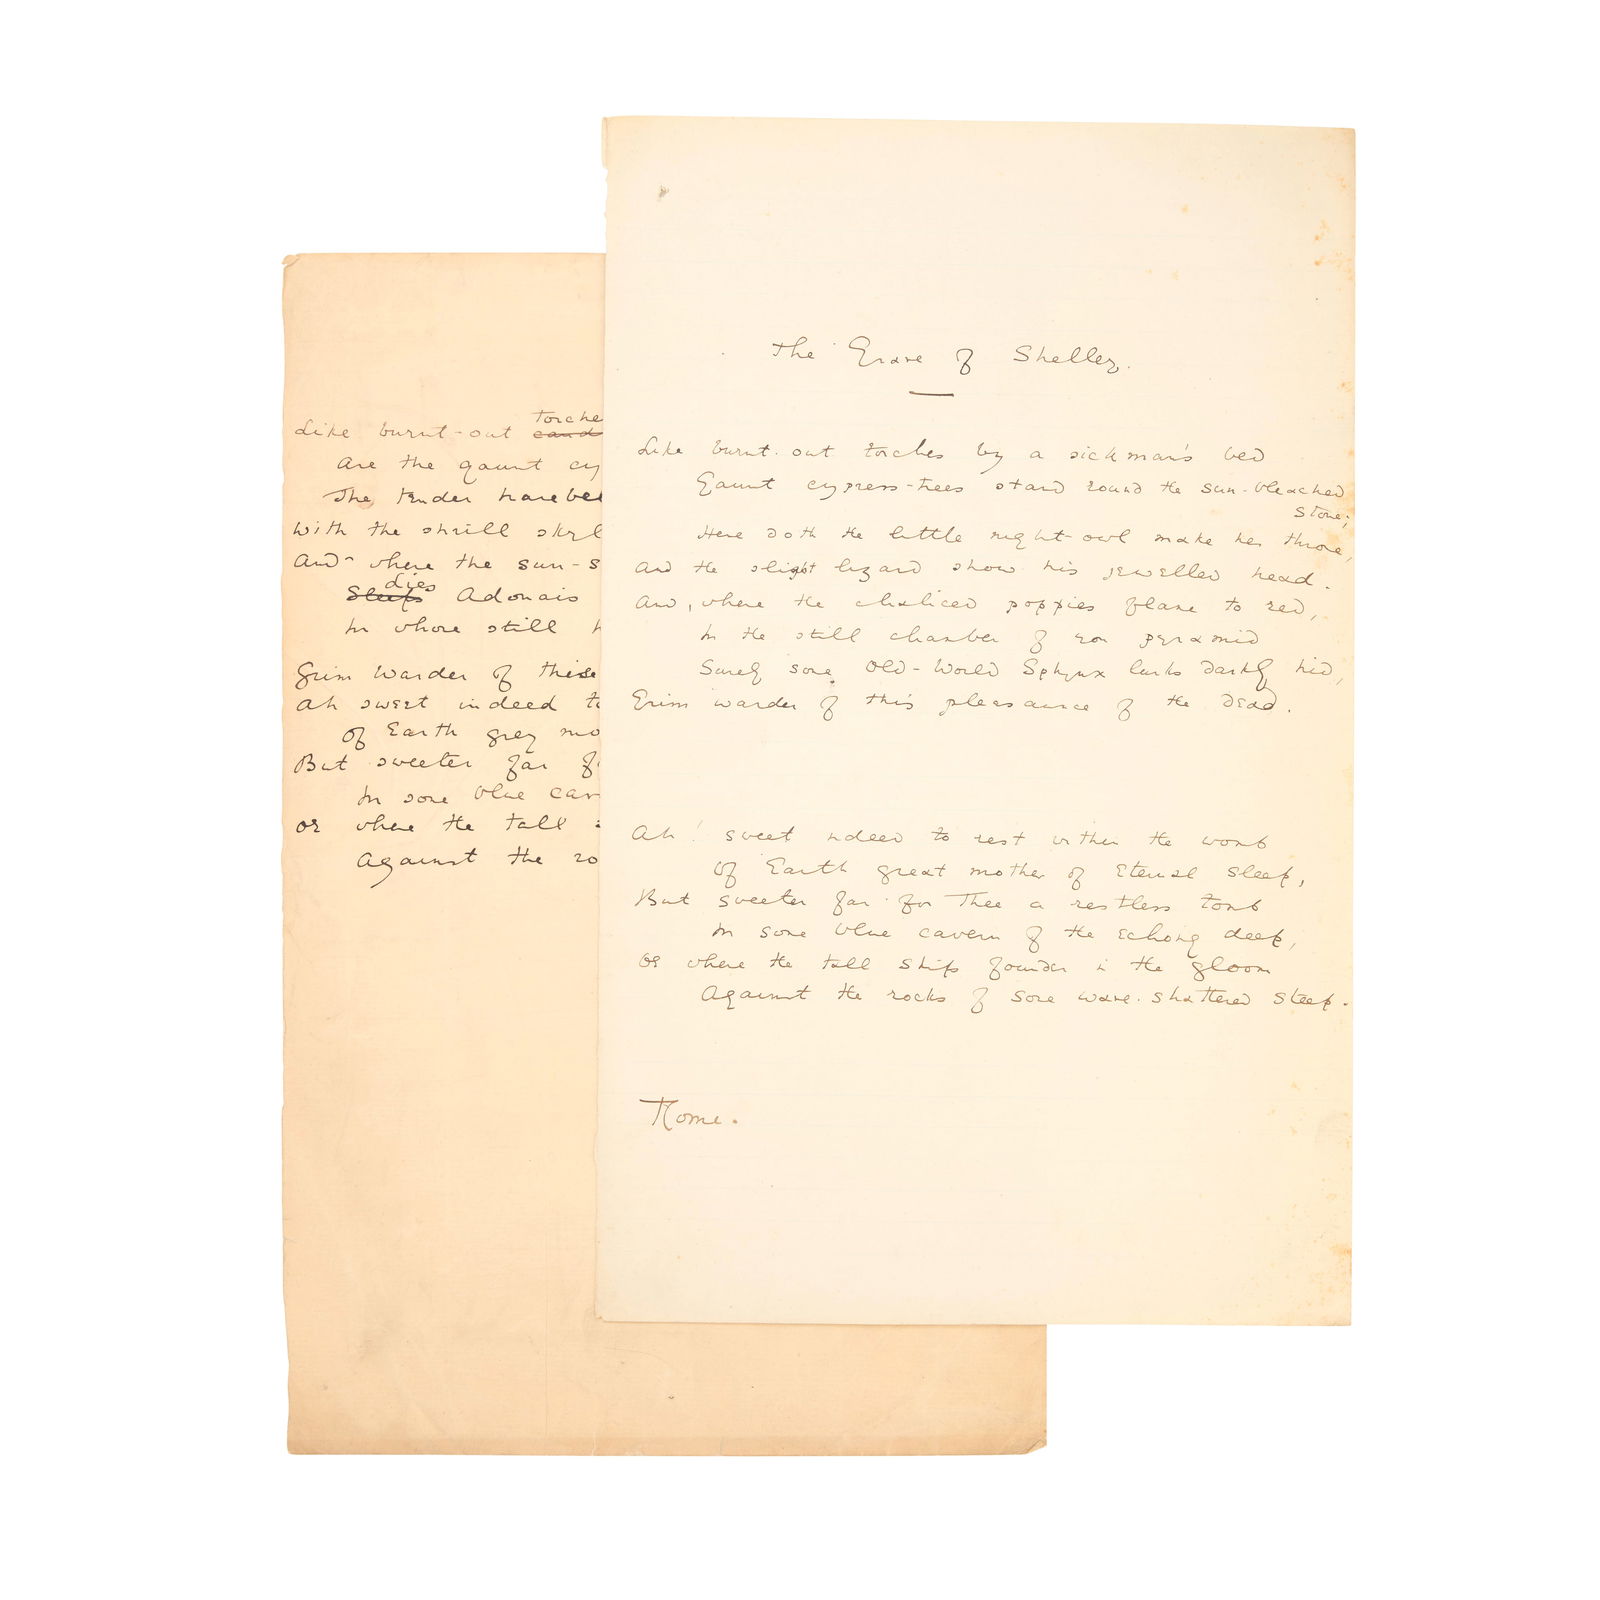 Like burnt-out torche
cand
are the gaunt cy
The tender harebel
with the shrill skyl
And where the sun-s
dies
Sleeps Adonais
In whose still
Grim Warder of this
Ah sweet indeed to
Of Earth grey mo
But sweeter far f
In some blue cav
Or where the tall
Against the ro
The Grave of Shelley.
Like burnt-out torches by a sick man's bed
Gaunt cypress-trees stand round the sun-bleached
stone;
Here doth the little night-owl make her throne,
And the slight lizard show his jewelled head.
And, where the chaliced poppies flame to red,
In the still chamber of yon pyramid
Surely some Old-World Sphynx lurks darkly hid,
Grim warder of this pleasaunce of the dead.
Ah! sweet indeed to rest within the womb
Of Earth great mother of Eternal Sleep,
But sweeter far for Thee a restless tomb
In some blue cavern of the Echoing deep,
Or where the tall ships founder in the gloom
Against the rocks of some wave-shattered steep.
Rome.